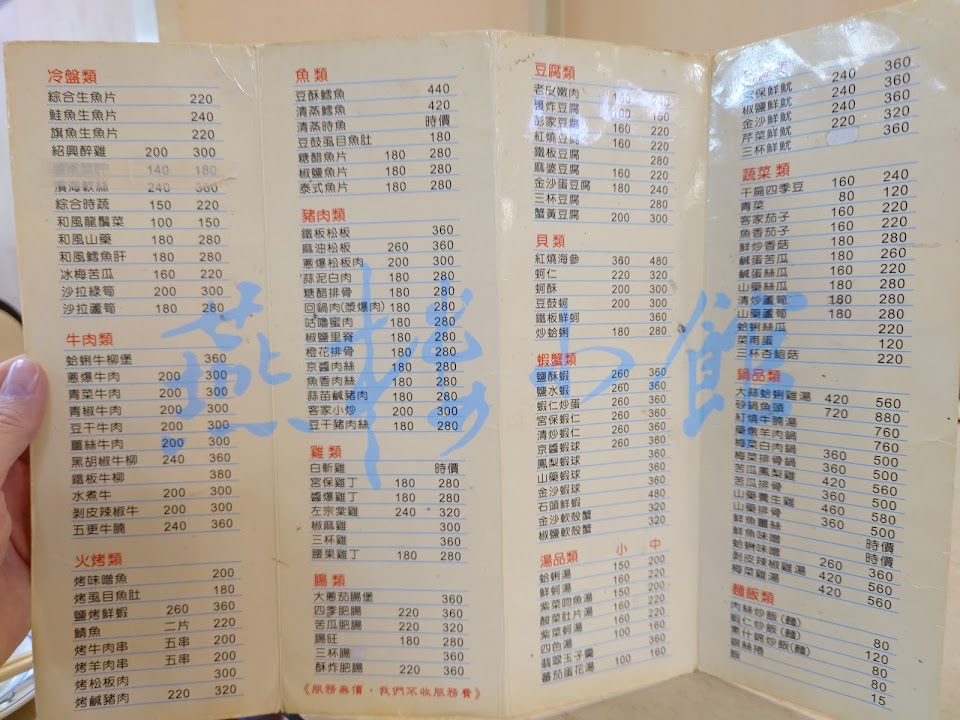 冷盤類
綜合生魚片 220
鮭魚生魚片 240
旗魚生魚片 220
紹興醉雞 200 300
140 180
涼海軟絲 240 360
綜合時蔬 150 220
和風龍鬚菜 100 150
和風山藥 180 280
和風鱈魚肝 180 280
冰梅苦瓜 160 220
沙拉綠筍 200 300
沙拉蘆筍 180 280
牛肉類
蛤蜊牛柳堡 360
蔥爆牛肉 200 300
青菜牛肉 200 300
青椒牛肉 200 300
豆干牛肉 200 300
薑絲牛肉 200 300
黑胡椒牛柳 240 360
鐵板牛柳 380
水煮牛 200 300
剝皮辣椒牛 200 300
五更牛腩 240 360
火烤類
烤味噌魚 200
烤虱目魚肚 180
鹽烤鮮蝦 260 360
鯖魚 二片 220
烤牛肉串 五串 200
烤羊肉串 五串 200
烤松板肉 300
烤鹹豬肉 220 320
魚類
豆酥鱈魚 440
清蒸鱈魚 420
清蒸時魚 時價
豆鼓虱目魚肚 180
糖醋魚片 180 280
椒鹽魚片 180 280
泰式魚片 180 280
豬肉類
鐵板松板 360
麻油松板 260 360
蔥爆松板肉 200 300
蒜泥白肉 180 280
糖醋排骨 180 280
回鍋肉(漿爆肉) 180 280
咕嚕蜜肉 180 280
椒鹽里脊 180 280
橙花排骨 180 280
京醬肉絲 180 280
魚香肉絲 180 280
蒜苗鹹豬肉 180 280
客家小炒 200 300
豆干豬肉絲 180 280
雞類
白斬雞 時價
宮保雞丁 180 280
醬爆雞丁 180 280
左宗棠雞 240 320
椒麻雞 300
三杯雞 360
腰果雞丁 180 280
腸類
大蔥茄腸堡 360
四季肥腸 220 360
苦瓜肥腸 220 320
腸旺 180 280
三杯腸 360
酥炸肥腸 220 360
《服務無價，我們不收服務費》
豆腐類
老皮嫩肉
豆腐 150
彭家豆腐 160 220
紅燒豆腐 160 220
鐵板豆腐 280
麻婆豆腐 160 220
金沙蛋豆腐 180 240
三杯豆腐 280
蟹黃豆腐 200 300
貝類
紅燒海參 360 480
蚵仁 220 320
蚵酥 200 300
豆鼓蚵 200 300
鐵板鮮蚵 360
炒蛤蜊 180 280
蝦蟹類
鹽酥蝦 260 360
鹽水蝦 260 360
蝦仁炒蛋 260 360
宮保蝦仁 260 360
清炒蝦仁 260 360
京醬蝦球 260 360
鳳梨蝦球 360
山藥蝦球 360
金沙蝦球 360
石頭鮮蝦 480
金沙軟殼蟹 320
椒鹽軟殼蟹 320
湯品類 小 中
蛤蜊湯 150 200
鮮蚵湯 150 200
紫菜吻魚湯 150 200
酸菜肚片湯 160 220
紫菜蚵湯 160 220
四色湯 100 160
翡翠玉子羹 360
蕃茄蛋花湯 100 160
240 360
宮保鮮魷 240 360
椒鹽鮮魷 240 360
金沙鮮魷 220 320
芹菜鮮魷 360
三杯鮮魷
蔬菜類
干扁四季豆 160 240
青菜 80 120
客家茄子 160 220
魚香茄子 160 220
鮮炒香菇 180 280
鹹蛋苦瓜 180 260
鹹蛋絲瓜 160 220
山藥絲瓜 180 280
清炒蘆筍 180 280
山藥蘆筍 180 280
蛤蜊絲瓜 220
菜甫蛋 120
三杯杏鮑菇 220
鍋品類
大蒜蛤蜊雞湯 420 560
砂鍋魚頭 720 880
紅燒牛腩湯 760
藥燉羊肉鍋 760
梅菜白肉鍋 500
梅菜排骨鍋 360 500
苦瓜鳳梨雞 420 560
苦瓜排骨 360 500
山藥養生雞 460 580
山藥排骨 360 500
鮮魚薑絲 時價
鮮魚味噌 時價
蛤蜊味噌 260 360
剝皮辣椒雞湯 420 560
梅菜雞湯 420 560
麵飯類
肉絲炒飯(麵) 80
蝦仁炒飯(麵) 120
素什錦炒飯(麵) 80
銀絲捲 80
飯 15
燕樓山館